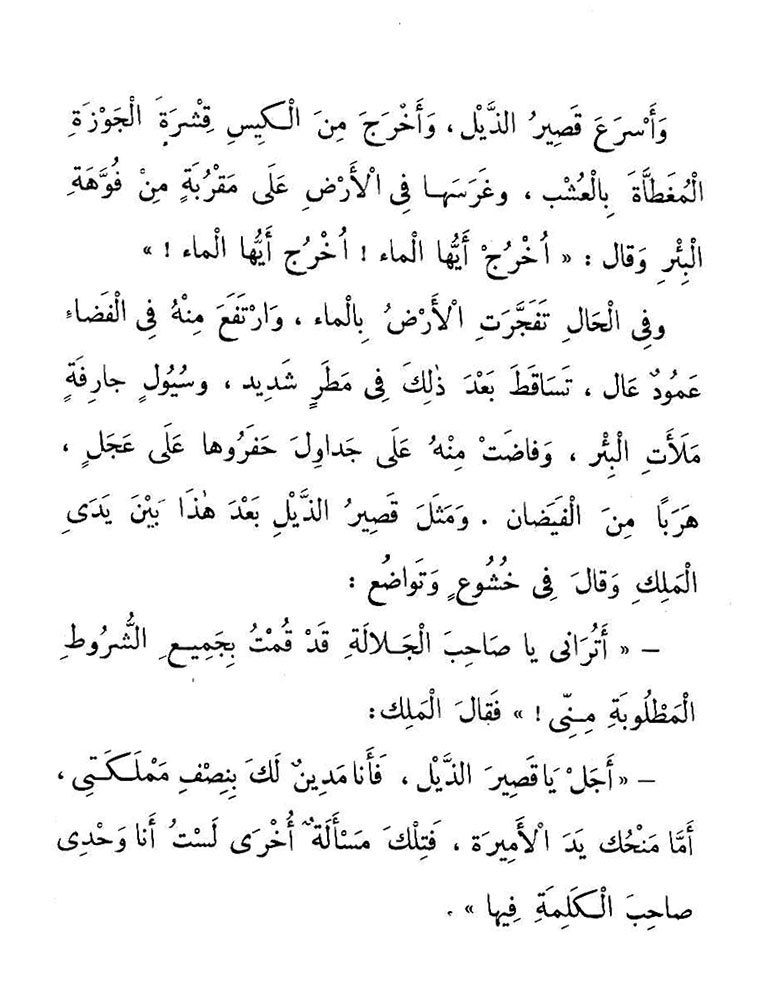 وَأَسْرَعَ قَصِيرُ الذَّيْل، وَأَخْرَجَ مِنَ الْكِيسِ قِشْرَةَ الْجَوْزَةِ
الْمُغَطاَّةَ بِالْعُشْب، وغَرَسَهـا فِى الْأَرْضِ عَلَى مَقْرُبَةٍ مِنْ فُوَّهَةِ
الْبِئْرِ وَقال : « اُخْرُجْ أَيُّها الْماء ! اُخْرُج أَيُّها الْماء ! »
وفِى الْحَالِ تَفَجَّرَتِ الْأَرْضُ بِالْماء، وَارْتَفَعَ مِنْهُ فِى الْفَضاءِ
عَمُودٌ عَال، تَسَاقَطَ بَعْدَ ذٰلِكَ فِى مَطَرٍ شَدِيد، وسُيُولٍ جارِفَةٍ
مَلَأَتِ الْبِئْر، وَفاضَتْ مِنْهُ عَلَى جَداوِلَ حَفَرُوها عَلَى عَجَلٍ،
هَرَبًا مِنَ الْفَيَضان. وَمَثَلَ قَصِيرُ الذَّيْلِ بَعْدَ هٰذَا بَيْنَ يَدَىِ
الْمَلِكِ وَقالَ فِى خُشُوعٍ وَتَواضُع :
– « أَتُرَانى يا صَاحِبَ الْجَـلالَةِ قَدْ قُمْتُ بِجَمِيـعِ الشُّرُوطِ
الْمَطْلُوبَةِ مِـنِّى ! » فَقالَ الْمَلِك:
– «أَجَلْ يَا قَصِيرَ الذَّيْل، فَأَنا مَدِينٌ لَكَ بِنِصْفِ مَمْلَـكَتِى،
أَمَّا مَنْحُك يَدَ الْأَمِيرَة، فَتِلْكَ مَسْأَلَةٌ أُخْرَى لَسْتُ أَنا وَحْدِى
صاحِبَ الْـكَلِمَةِ فِيها ».